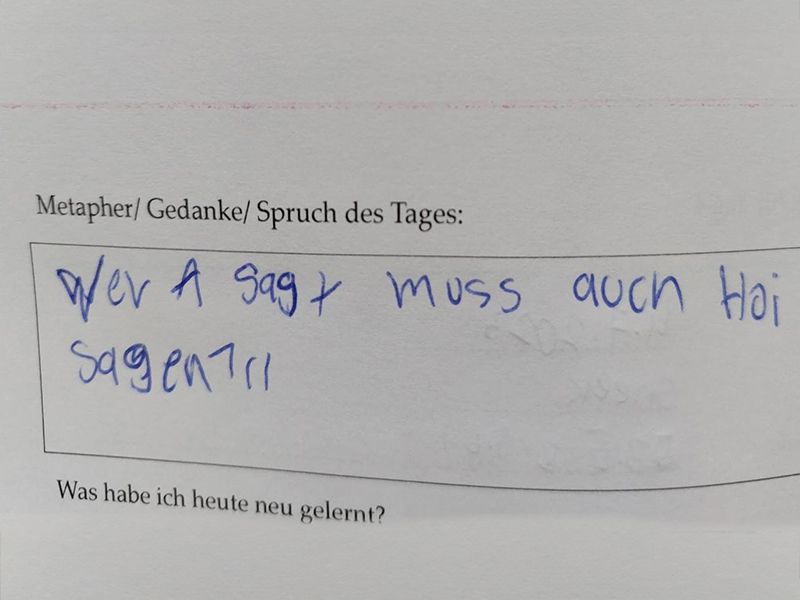 Metapher/ Gedanke/ Spruch des Tages:
Wer A sagt muss auch Hoi
sagen
Was habe ich heute neu gelernt?